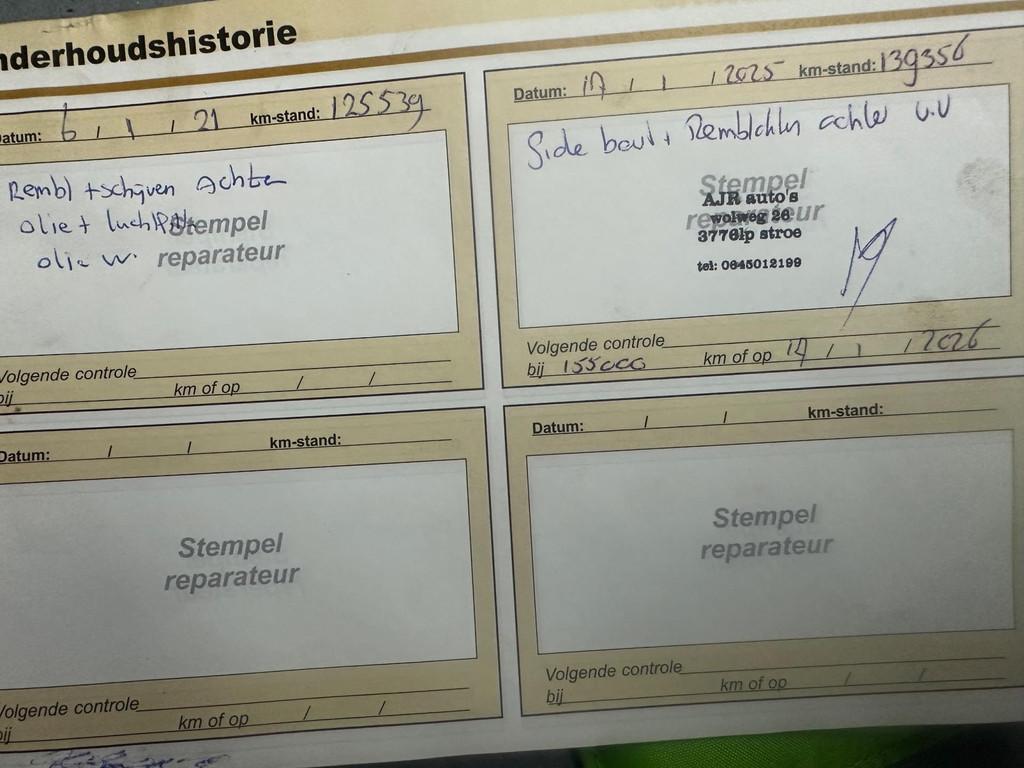 nderhoudshistorie
atum: 6 / 1 / 21 km-stand: 125539
Rembl + schijven Achter
olie +
olie w.
Stempel
reparateur
Volgende controle
bij km of op / /
Datum: / 1 / 2025 km-stand: 139356
Side + achter
Stempel
reparateur
AJR auto's
wolweg 26
3776lp stroe
tel: 0645012199
Volgende controle
bij 155000 km of op / 1 / 2026
Datum: / / km-stand:
Stempel
reparateur
Volgende controle
bij km of op / /
Datum: / / km-stand:
Stempel
reparateur
Volgende controle
bij km of op / /